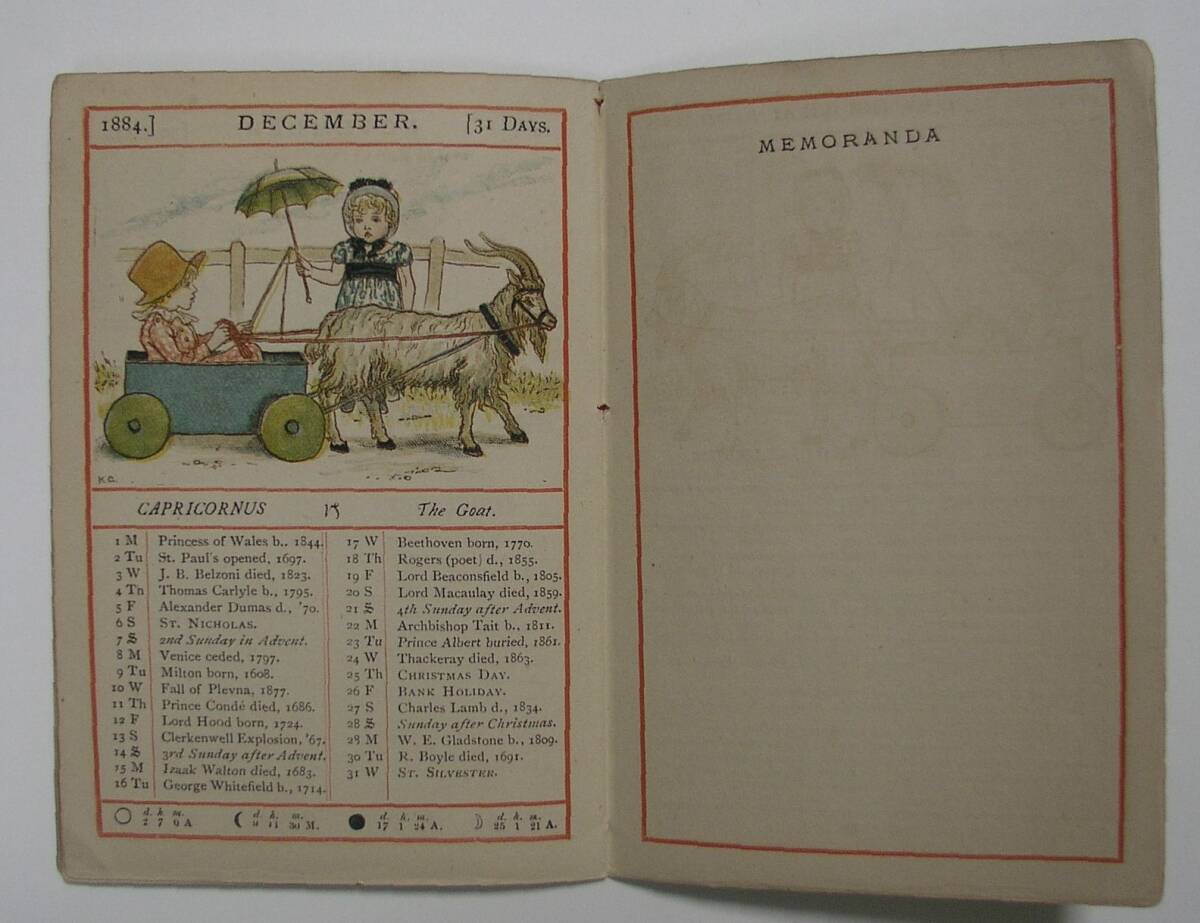 1884.] DECEMBER. [31 DAYS.
K.G.
CAPRICORNUS ♑ The Goat.
1 M Princess of Wales b., 1844.
2 Tu St. Paul's opened, 1697.
3 W J. B. Belzoni died, 1823.
4 Th Thomas Carlyle b., 1795.
5 F Alexander Dumas d., '70.
6 S ST. NICHOLAS.
7 S 2nd Sunday in Advent.
8 M Venice ceded, 1797.
9 Tu Milton born, 1608.
10 W Fall of Plevna, 1877.
11 Th Prince Condé died, 1686.
12 F Lord Hood born, 1724.
13 S Clerkenwell Explosion, '67.
14 S 3rd Sunday after Advent.
15 M Izaak Walton died, 1683.
16 Tu George Whitefield b., 1714.
17 W Beethoven born, 1770.
18 Th Rogers (poet) d., 1855.
19 F Lord Beaconsfield b., 1805.
20 S Lord Macaulay died, 1859.
21 S 4th Sunday after Advent.
22 M Archbishop Tait b., 1811.
23 Tu Prince Albert buried, 1861.
24 W Thackeray died, 1863.
25 Th CHRISTMAS DAY.
26 F BANK HOLIDAY.
27 S Charles Lamb d., 1834.
28 S Sunday after Christmas.
28 M W. E. Gladstone b., 1809.
30 Tu R. Boyle died, 1691.
31 W ST. SILVESTER.
d. h. m. d. h. m. d. h. m. d. h. m.
2 7 0 A 9 11 30 M. 17 1 24 A. 25 1 21 A.
MEMORANDA